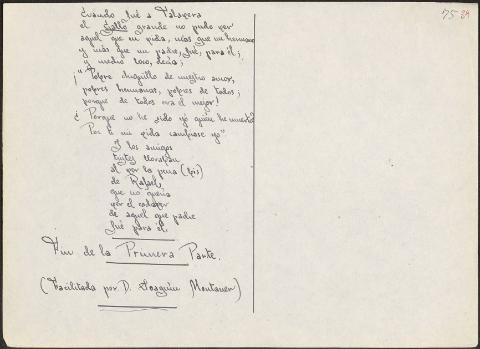 75 84
Cuando fué a Talavera
el Gallo grande no pudo ver
aquel que en vida, más que un hermano
y más que un padre, fué, para él;
y medio loco, decía;
¡"Pobre chiquillo de nuestro amor,
pobres hermanas, pobres de todos;
porque de todos era el mejor!
¿Porque no he sido yo quien he muerto?
Por tu vida cambiase yo"
Y los amigos
tristes lloraban
al ver la pena (bis)
de Rafael,
que no quería
ver el cadaver
de aquel que padre
fué para él.
Fin de la Primera Parte.
(Facilitada por D. Joaquin Montaner)